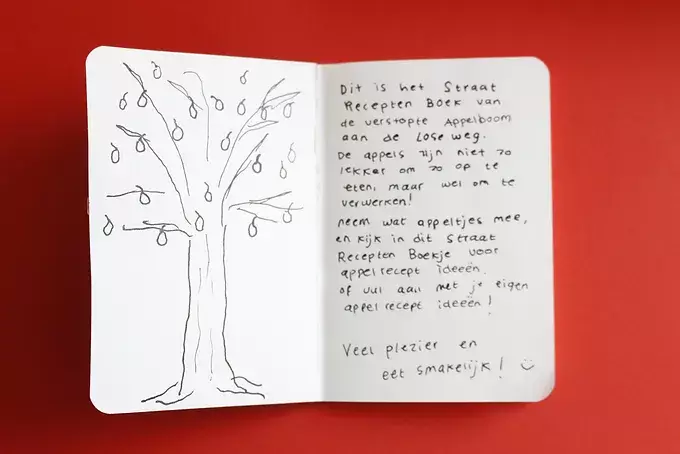 Dit is het Straat
Recepten Boek van
de verstopte Appelboom
aan de Lose weg.
De appels zijn niet zo
lekker om zo op te
eten, maar wel om te
verwerken!
neem wat appeltjes mee,
en kijk in dit Straat
Recepten Boekje voor
appelrecept ideeën
of vul aan met je eigen
appelrecept ideeën!
Veel plezier en
eet smakelijk! :)